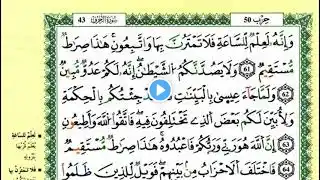 حزب 50
سورة الزخرف
43
وَإِنَّهُ لَعِلْمٌ لِّلسَّاعَةِ فَلَا تَمْتَرُنَّ بِهَا وَاتَّبِعُونِ هَٰذَا صِرَٰطٌ
مُّسْتَقِيمٌ 61 وَلَا يَصُدَّنَّكُمُ الشَّيْطَٰنُ إِنَّهُ لَكُمْ عَدُوٌّ مُّبِينٌ
62 وَلَمَّا جَاءَ عِيسَىٰ بِالْبَيِّنَٰتِ قَالَ قَدْ جِئْتُكُم بِالْحِكْمَةِ
وَلِأُبَيِّنَ لَكُم بَعْضَ الَّذِي تَخْتَلِفُونَ فِيهِ فَاتَّقُوا اللَّهَ وَأَطِيعُونِ
63 إِنَّ اللَّهَ هُوَ رَبِّي وَرَبُّكُمْ فَاعْبُدُوهُ هَٰذَا صِرَٰطٌ مُّسْتَقِيمٌ
64 فَاخْتَلَفَ الْأَحْزَابُ مِن بَيْنِهِمْ فَوَيْلٌ لِّلَّذِينَ ظَلَمُوا